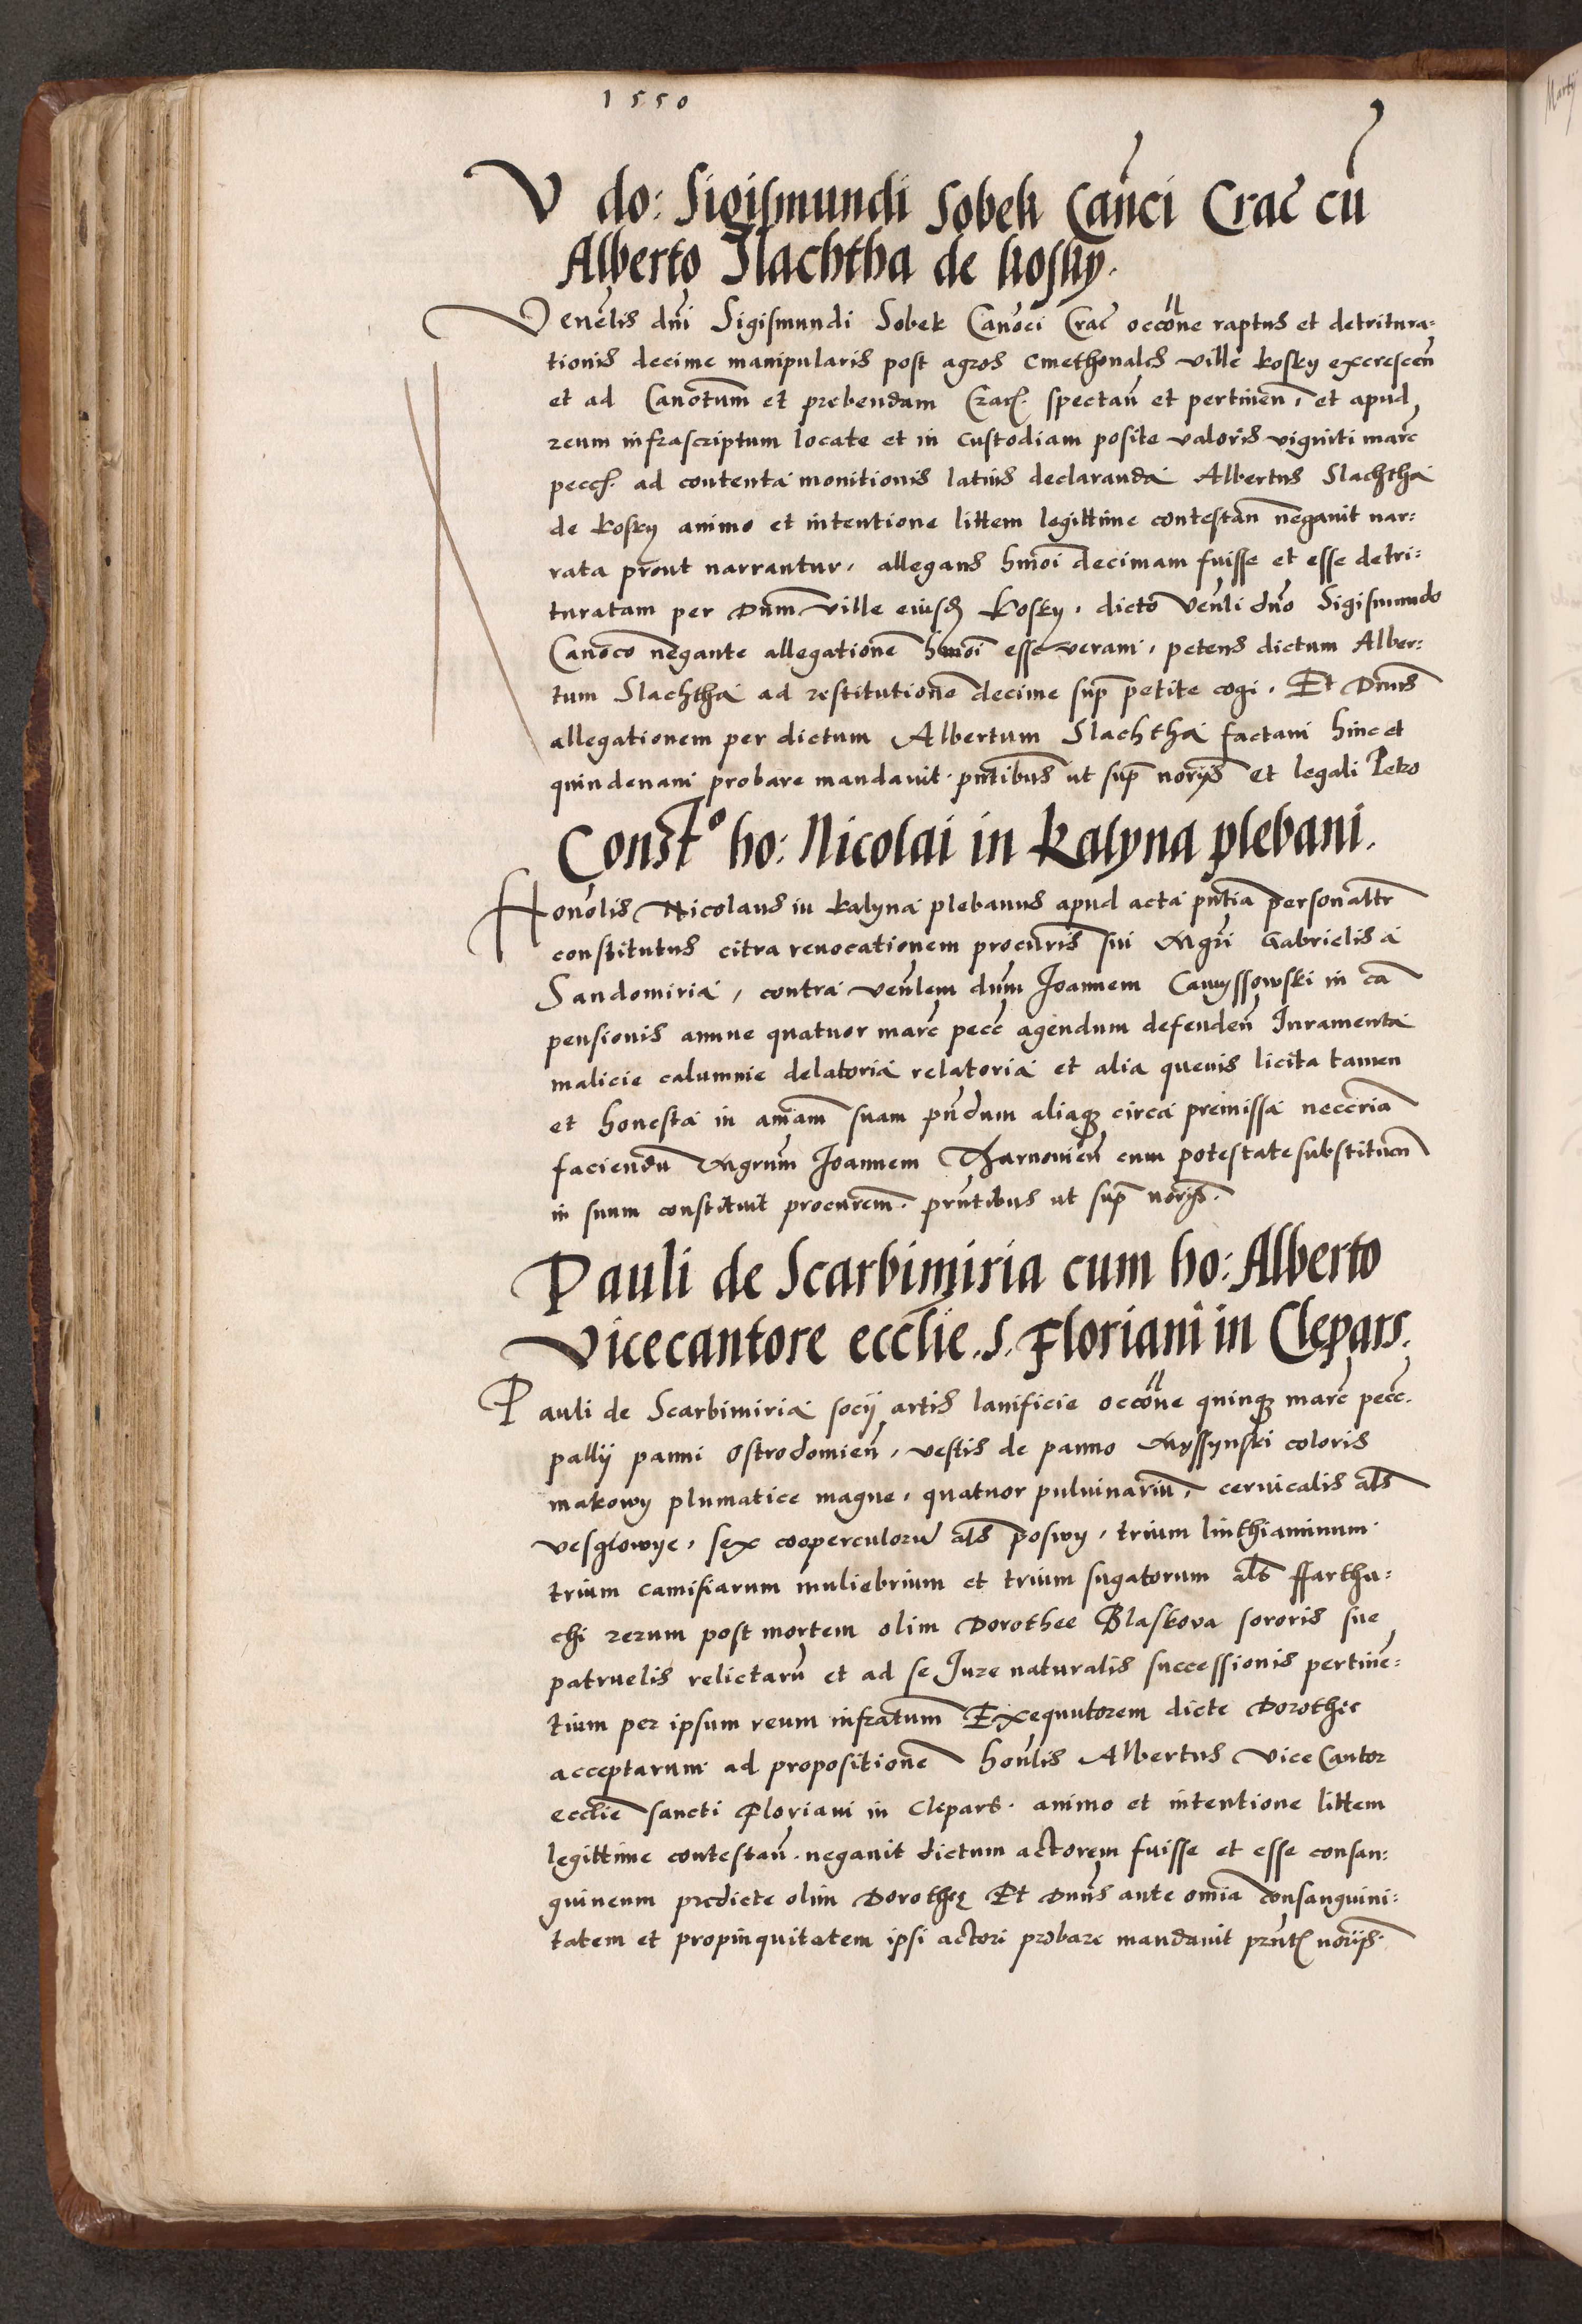 1550
V do: Sigismundi Sobek Canci Crac cu
Alberto Slachtha de kosky.
Venelis dni Sigismundi Sobek Canoci Crac occone raptus et detritura=
tionis decime manipularis post agros cmethonales ville kosky excrescen
et ad Canotum et prebendam Crac. spectan et pertinen, et apud
reum infrascriptum locate et in custodiam posite valoris viginti marc
pecc. ad contenta monitionis latius declaranda Albertus Slachtha
de kosky animo et intentione littem legittime contestan negavit nar=
rata prout narrantur, allegans hmoi decimam fuisse et esse detri=
turatam per Dnm ville eiusd Kosky, dicto venli dno Sigismundo
Canoco negante allegatione hmoi esse veram, petens dictum Alber=
tum Slachtha ad restitutione decime sup petite cogi. Et Dnus
allegationem per dictum Albertum Slachtha factam hinc et
quindenam probare mandavit. pntibus ut sup norijs et legali Petro
Constº ho: Nicolai in kalyna plebani.
Honolis Nicolaus in kalyna plebanus apud acta pntia personaltr
constitutus citra revocationem procuris sui Mgri Gabrielis a
Sandomiria, contra venlem dnm Joannem Camyssowski in ca
pensionis annue quatuor marc pecc agendum defenden Iuramenta
malicie calumnie delatoria relatoria et alia quevis licita tamen
et honesta in amam suam pndum aliaq circa premissa necceria
faciendu Mgrum Joannem Tharnovien cum potestate substituen
in suum constituit procurem. prntibus ut sup norijs.
Pauli de Scarbimiria cum ho: Alberto
Vicecantore ecclie .S. Floriani in Clepars.
Pauli de Scarbimiria socij artis lanificie occone quinq marc pecc.
pallij panni Ostrodomien, vestis de panno Myssynski coloris
makowy plumatice magne, quatuor pulvinariu, cervicalis als
vesglowye, sex cooperculoru als poswy, trium linthiaminum
trium camisiarum muliebrium et trium sugatorum als ffarthu=
chi rerum post mortem olim Dorothee Blaskova sororis sue
patruelis relictaru et ad se Jure naturalis successionis pertine=
tium per ipsum reum infratum Exequutorem dicte Dorothee
acceptarum ad propositione honlis Albertus Vice Cantor
ecclie sancti Floriani in Clepars. animo et intentione littem
legittime contestan. negavit dictum actorem fuisse et esse consan=
guineum predicte olim Dorothe Et Dnus ante omia consanguini=
tatem et propinquitatem ipsi actori probare mandavit prnt norijs.